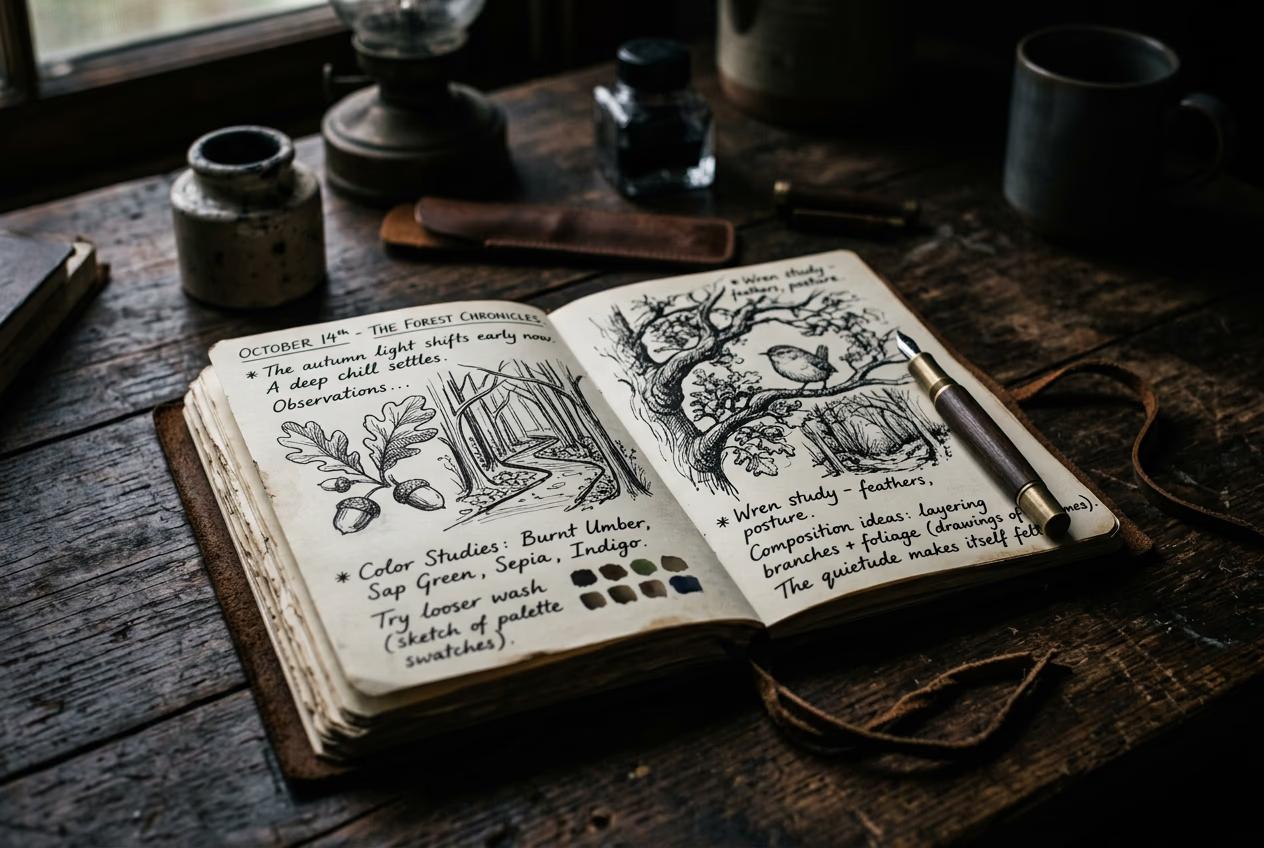 OCTOBER 14th - THE FOREST CHRONICLES
* The autumn light shifts early now.
A deep chill settles.
Observations...
* Color Studies: Burnt Umber,
Sap Green, Sepia, Indigo.
Try looser wash
(sketch of palette
swatches).
* Wren study -
feathers, posture.
* Wren study - feathers,
posture.
Composition ideas: layering
branches + foliage (drawings of
The quietude makes itself